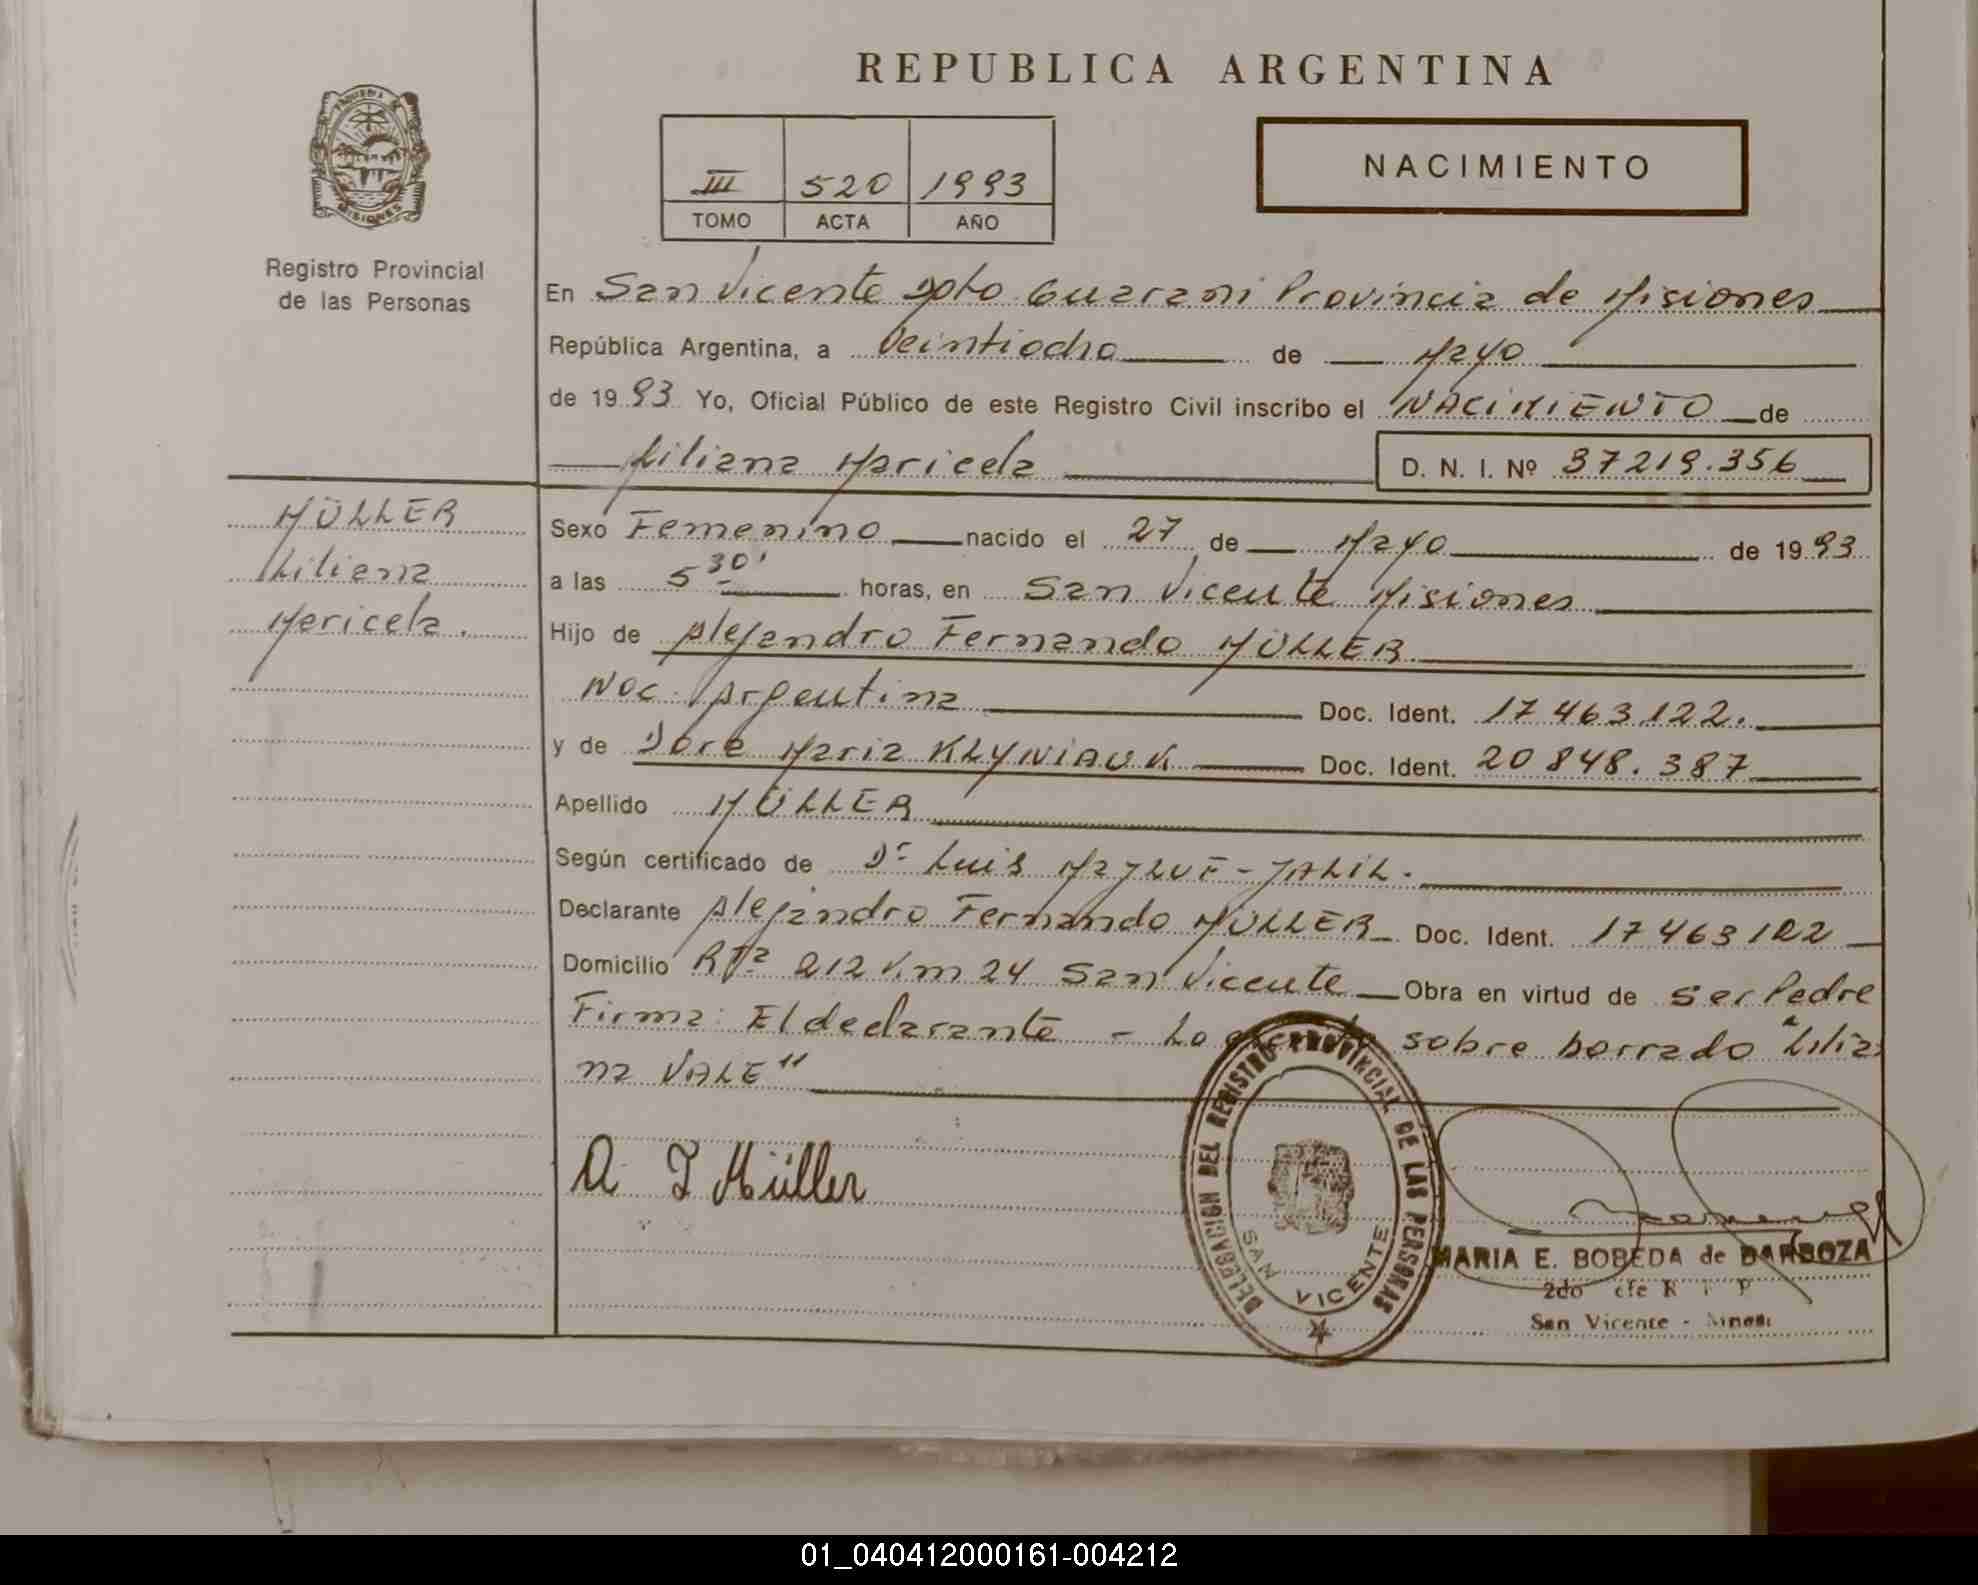 REPUBLICA ARGENTINA
PROVINCIA DE
MISIONES
Registro Provincial
de las Personas
III 520 1993
TOMO ACTA AÑO
NACIMIENTO
En San Vicente Dpto Guarani Provincia de Misiones
República Argentina, a Veintiocho de Mayo
de 1993 Yo, Oficial Público de este Registro Civil inscribo el NACIMIENTO de
Liliana Maricela D. N. I. Nº 37219.356
MÜLLER
Liliana
Maricela.
Sexo Femenino nacido el 27 de Mayo de 1993
a las 5 30' horas, en San Vicente Misiones
Hijo de Alejandro Fernando MÜLLER
Nac. Argentina Doc. Ident. 17463122.
y de Dora Maria KLYNIAUK Doc. Ident. 20848.387
Apellido MÜLLER
Según certificado de Dr Luis JALIL.
Declarante Alejandro Fernando MÜLLER Doc. Ident. 17463122
Domicilio Rta 212 Km 24 San Vicente Obra en virtud de Ser Padre
Firma: El declarante - Lo sobre borrado "Lilia
na VALE"
A F Müller
DELEGACION DEL REGISTRO PROVINCIAL DE LAS PERSONAS
SAN VICENTE
MARIA E. BOBEDA de BARBOZA
2do
San Vicente -
01_040412000161-004212